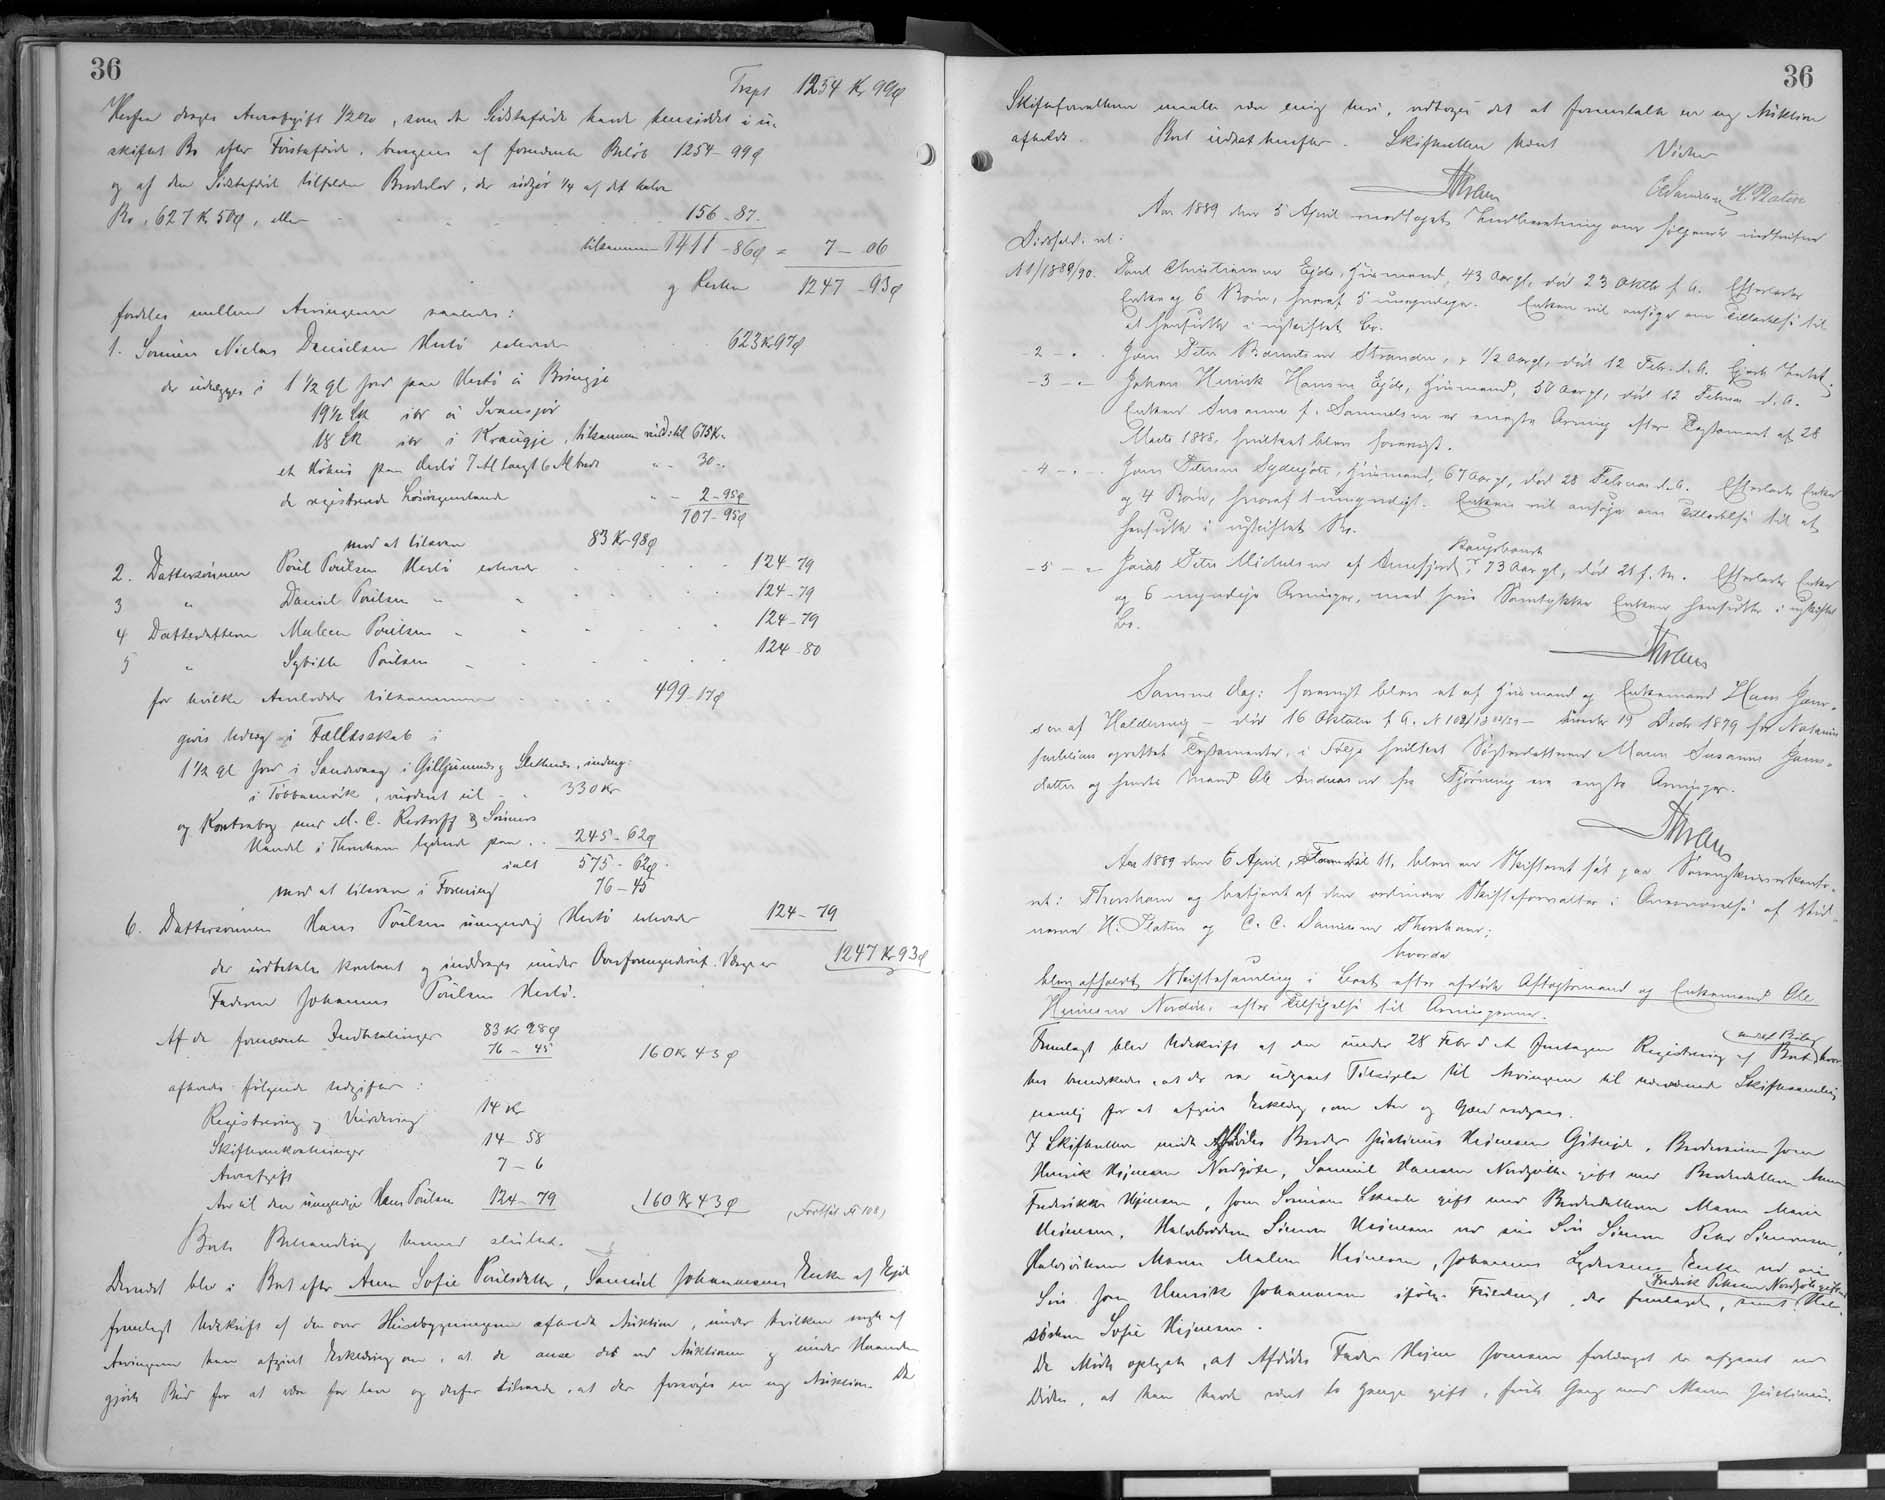 36
Trspt 1254 Kr 99 ø
Herfra drages Arveafgift 1/2 o/o, som den Sidstafdøde havde hensiddet i u-
skiftet Bo efter Førstafdøde, beregnes af fornævnte Beløb 1254-99 ø
og af den Sidstafdøde tilfaldne Broderlod, der udgjør 1/4 af det halve
Bo, 627 Kr 50 ø, eller 156-87.
tilsammen 1411-86 ø = 7-06
og Resten 1247-93 ø
fordeles mellem Arvingerne saaledes:
1. Sønnen Niclas Danielsen Hestø erholder 623 Kr 97 ø
der udlægges i 1 1/2 gl Jord paa Hestø à Bringje
19 1/2 Sk ibr à Svansjør
18 Sk ibr i Kraugje, tilsammen vurd: til 675 Kr.
et Kohus paa Hestø 7 Al langt 6 Al bredt " - 30 -
de registrerede Løsøregjenstande " - 2-95 ø
707-95 ø
mod at tilsvare 83 Kr 98 ø
2. Dattersønnen Poul Poulsen Hestø erholder 124-79
3 " Daniel Poulsen " " 124-79
4 Datterdatteren Maleen Poulsen " 124-79
5 " Sybille Poulsen 124-80
for hvilke Arvelodder tilsammen 499-17 ø
gives Udlæg i Fællesskab i
1 1/2 gl Jord i Sandevaag i Gilljumnes og Slettenes, indmg:
i Tobbaersvik, vurderet til 330 Kr
og Kontrabog med M. C. Restorff & Sønners
Handel i Thorshavn lydende paa 245-62 ø
ialt 575-62 ø
mod at tilsvare i Forening 76-45
6. Dattersønnen Hans Poulsen umyndig Hestø erholder 124-79
1247 Kr 93 ø
der udbetales kontant og inddrages under Overformynderiet. Værge er
Faderen Johannes Poulsen Hestø.
Af de fornævnte Indbetalinger 83 Kr 98 ø
76-45 160 Kr 43 ø
afholdes følgende Udgifter:
Registrering og Vurdering 14 Kr
Skifteomkostninger 14-58
Arveafgift 7-6
Arv til den umyndige Hans Poulsen 124-79 160 Kr 43 ø (Fortsat Fol 108)
Boets Behandling hermed sluttet.
Dernæst blev i Boet efter Anna Sofie Poulsdatter, Samuel Johannesens Enke af Ejde
fremlagt Udskrift af den over Husebygningerne afholdte Auktion, under hvilken nogle af
Arvingerne have afgivet Erklæring om, at de anse det ved Auktionen og under Haanden
gjorte Bud for at være for lave og derfor tilraade, at der forsøges en ny Auktion. Da
36
Skifteforvalteren maatte være enig heri, vedtoges det at foranstalte en ny Auktion
afholdt. Boet udsat herefter. Skifteretten hævet
Vidner
CC Danielsen H Platen
Aar 1889 den 5 April modtoges Indberetning om følgende indtrufne
Dødsfald: vl:
N 1/1889/90. Poul Christiansen Ejde, Huusmand, 43 Aar gl, død 23 Oktbr f. A. Efterlader
Enke og 6 Børn, hvoraf 5 umyndige. Enken vil ansøge om Tilladelse til
at hensidde i uskiftet Bo.
- 2 - " - Joen Peter Strander, 1/2 Aar gl, død 12 Febr. d. A. Ejede Intet.
- 3 - " - Johan Henrik Hansen Ejde, Huusmand, 50 Aar gl, død 12 Februar d. A.
Enken Susanne f. Samuelsen er eneste Arving efter Testament af 28
Marts 1888, hvilket blev foreviist.
- 4 - " - Joen Petersen Sydregøte, Huusmand, 67 Aar gl, død 28 Februar d. A. Efterlader Enke
og 4 Børn, hvoraf 1 umyndigt. Enken vil ansøge om Tilladelse til at
hensidde i uskiftet Bo.
- 5 - " - Jacob Peter Michelsen af Arnefjord, Kongsbonde 73 Aar gl, død 21 f. M. Efterlader Enke
og 6 myndige Arvinger, med hvis Samtykke Enken hensidder i uskiftet
Bo.
Samme Dag: foreviist blev et af Huusmand og Enkemand Hans Joen-
sen af Haldersvig - død 16 Oktober f. A. N 102/1888/89 - under 19 Decbr 1879 for Notarius
publicus oprettet Testamente, i Følge hvilket Søsterdatteren Maren Susanne Joens-
datter og hendes Mand Ole Andreasen fra Tjørnevig ere eneste Arvinger.
Aar 1889 den 6 April, Form Kl 11, blev en Skifteret sat paa Sorenskriverkonto-
ret i Thorshavn og betjent af den ordinære Skifteforvalter i Overværelse af Vid-
nerne H. Platen og C. C. Danielsen Thorshavn;
hvorda
blev afholdt Skiftesamling i Boet efter afdøde Aftægtsmand og Enkemand Ole
Heinesen Nordøre efter Tilsigelse til Arvingerne.
Fremlagt blev Udskrift af den under 28 Febr d. A. foretagne Registrering af Boet (med 1 Bilag) hvor-
hos bemærkedes, at der var udgaaet Tilsigelse til Arvingerne til nærværende Skiftesamling
navnlig for at afgive Erklæring, om Arv og Gæld vedgaas.
I Skifteretten mødte Afdødes Broder Justinus Heinesen Gøtueide, Brodersønnen Joen
Henrik Heinesen Nordgøte, Samuel Hansen Nordgøte gift med Broderdatteren Anna
Fredrikke Heinesen, Joen Simonsen gift med Broderdatteren Maren Marie
Heinesen, Halvbroderen Simon Heinesen ved sin Søn Simon Peter Simonsen,
Halvsøsteren Maren Malene Heinesen, Johannes Lydersens Enke ved sin
Søn Joen Henrik Johannesen ifølge Fuldmagt, der fremlagdes, samt Fredrik Petersen Nordgøte gift med Halv-
søsteren Sofie Heinesen.
De Mødte oplyste, at Afdødes Fader Heine Joensen forlængst er afgaaet ved
Døden, at han havde været to Gange gift, første Gang med Maren Justinus-